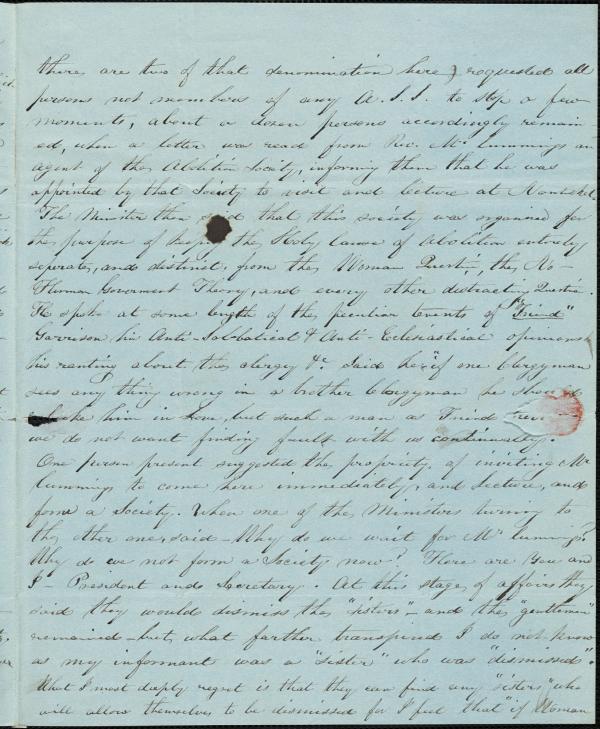 there are two of that denomination here) requested all
persons not members of any A.S.S. to stop a few
moments, about a dozen persons accordingly remain
ed, when a letter was read from Rev. Mr Cummings an
agent of the Abolition Society, informing them that he was
appointed by that Society to visit and lecture at Nantucket.
The Minister then said that this society was organized for
the purpose of keeping the Holy cause of Abolition entirely
seperate, and distinct, from the Woman Question, the No-
Human Goverment Theory, and every other distracting Question.
He spoke at some length of the peculiar tenets of "Friend"
Garrison his Anti-Sabbatical & Anti-Eclesiastical opinions
his ranting about the clergy &c. Said he "if one Clergyman
sees any thing wrong in a brother Clergyman he should
rebuke him in Love, but such a man as Friend
we do not want finding fault with us continually.
One person present suggested the propriety of inviting Mr
Cummings to come here immediately, and lecture, and
form a Society. When one of the Ministers turning to
the other one said - Why do we wait for Mr Cummings?
Why do we not form a Society now? Here are you and
I - President and Secretary. At this stage of affairs they
said they would dismiss the "sisters" - and the "gentlemen"
remained - but what farther transpired I do not know
as my informant was a "sister" who was "dismissed".
What I most deeply regret is that they can find any "sisters" who
will allow themselves to be dismissed for I feel that "if Woman